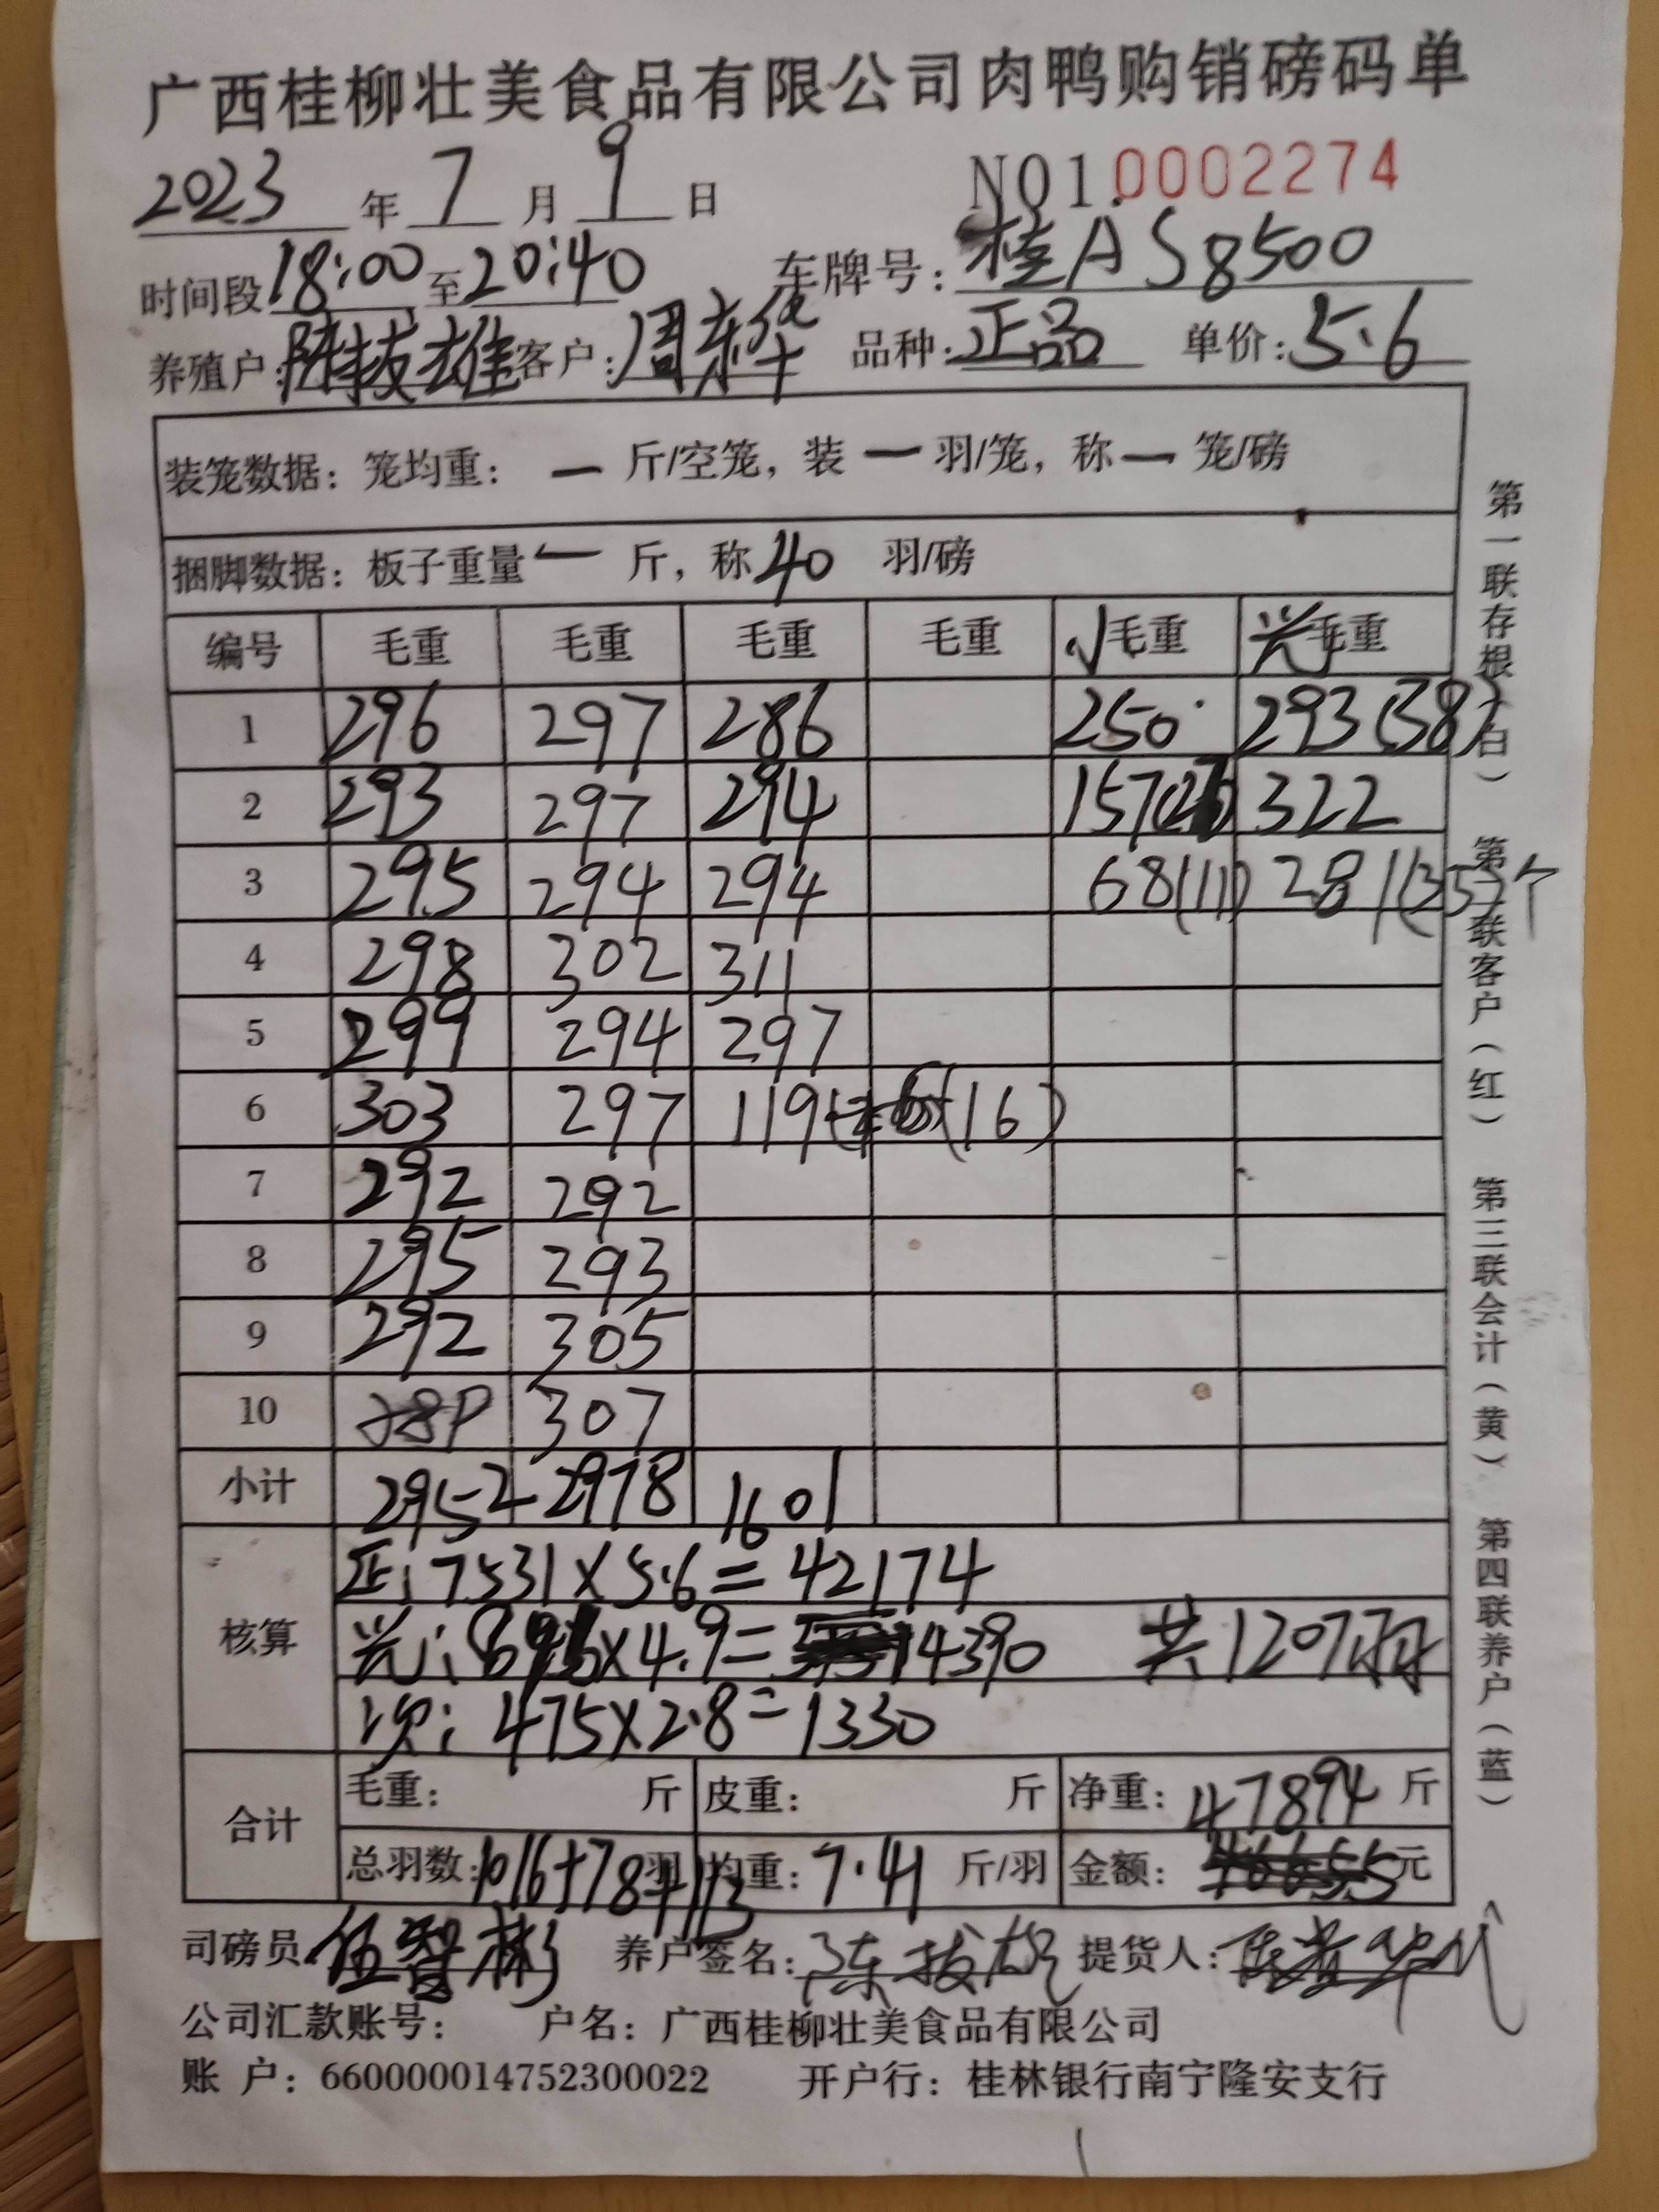 广西桂柳壮美食品有限公司肉鸭购销磅码单
2023年7月9日 NO1.0002274
时间段18:00至20:40 车牌号:桂AS8500
养殖户:陈拔雄 客户:周东华 品种:正品 单价:5.6
装笼数据:笼均重:一斤/空笼,装一羽/笼,称一笼/磅
捆脚数据:板子重量一斤,称40羽/磅
编号 毛重 毛重 毛重 毛重 小毛重 兴毛重
1 296 297 286 250 293(38)
2 293 297 294 157 322
3 295 294 294 68(11) 281(35)个
4 298 302 311
5 299 294 297
6 303 297 119 (16)
7 292 292
8 295 293
9 292 305
10 289 307
小计 2952 2978 1601
核算
正:7531×5.6=42174
兴:896×4.9=4390 共1207羽
次:475×2.8=1330
合计
毛重: 斤 皮重: 斤 净重:47894斤
总羽数:1016+78+113羽 均重:7.41斤/羽 金额: 元
司磅员:伍智彬 养户签名:陈拔雄 提货人:
公司汇款账号: 户名:广西桂柳壮美食品有限公司
账 户:660000014752300022 开户行:桂林银行南宁隆安支行
第一联存根(白) 第二联客户(红) 第三联会计(黄) 第四联养户(蓝)